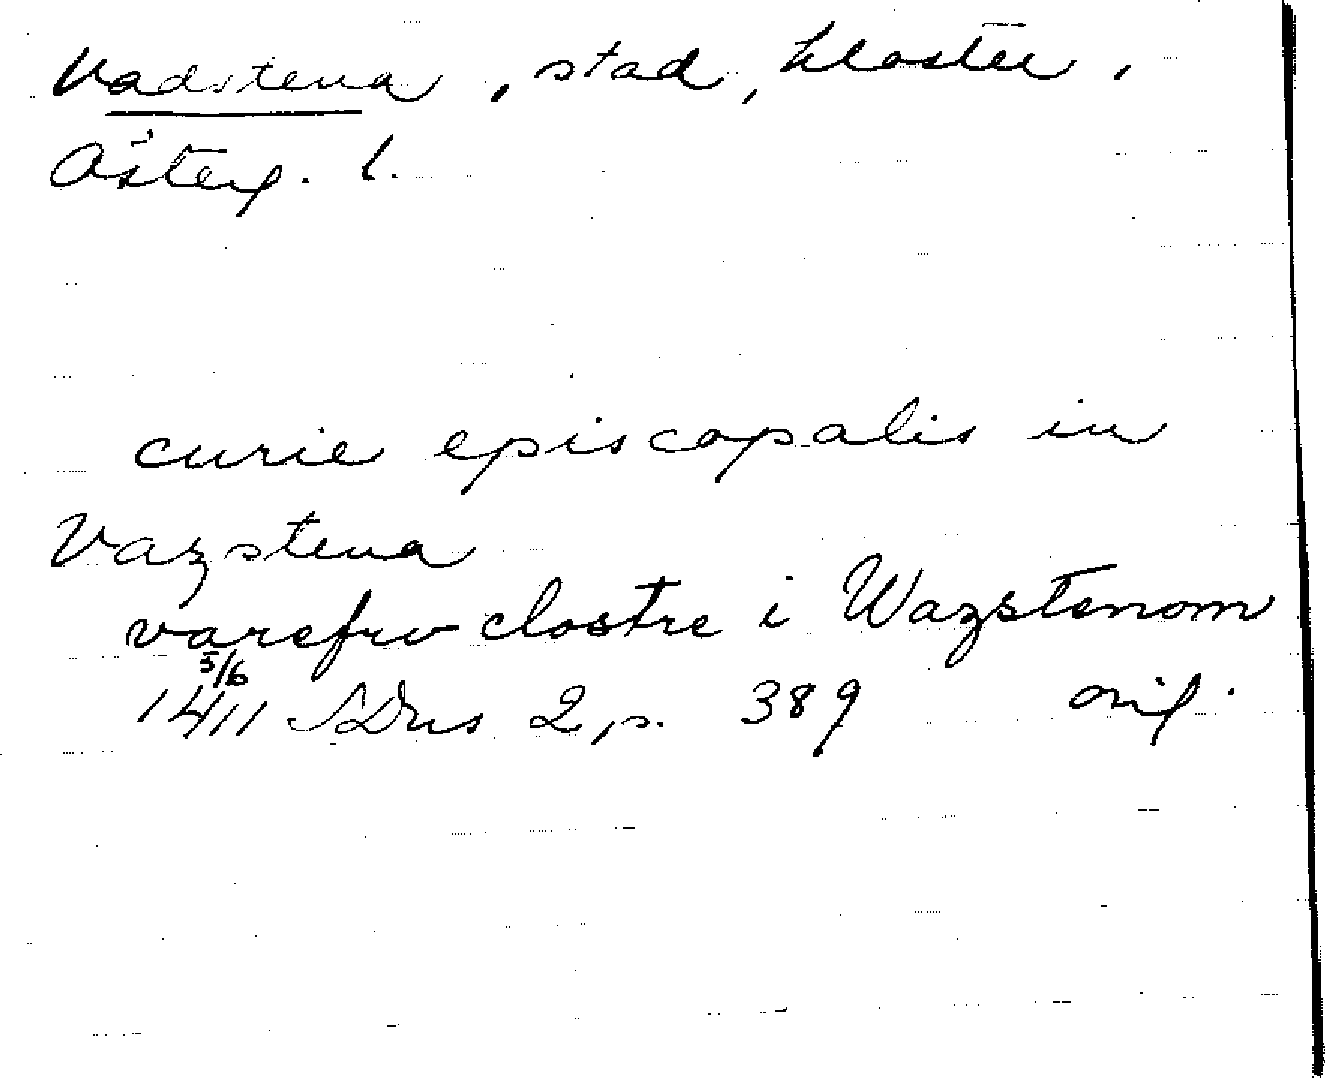 Vadstena, stad, kloster,
Österg. l.
curie episcopalis in
Vazstena
varefrv clostre i Wazstenom
5/6
1411 SDns 2 p. 389 orig.